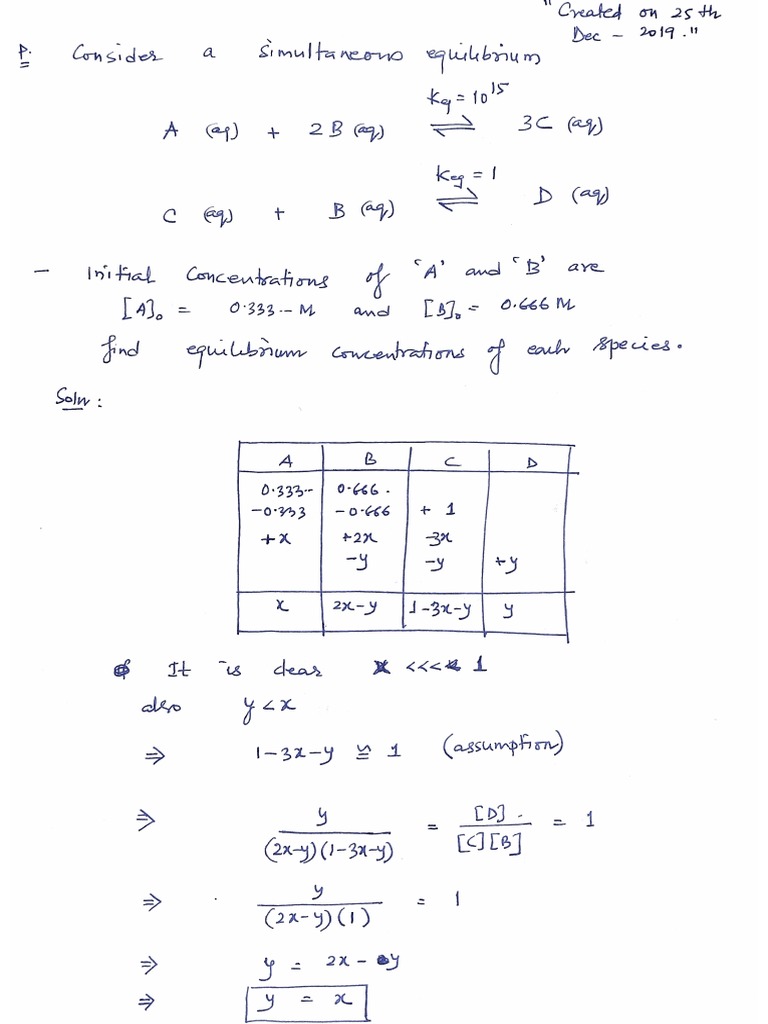 "Created on 25th
Dec - 2019."
P. Consider a simultaneous equilibrium
Keq = 10^15
A (aq) + 2B (aq) ⇌ 3C (aq)
Keq = 1
C (aq) + B (aq) ⇌ D (aq)
- Initial concentrations of 'A' and 'B' are
[A]₀ = 0.333.. M and [B]₀ = 0.666 M
find equilibrium concentrations of each species.
Soln :
A B C D
0.333.. 0.666.
-0.333 -0.666 + 1
+x +2x -3x
-y -y +y
x 2x-y 1-3x-y y
It is clear x <<< 1
also y < x
⇒ 1-3x-y ≅ 1 (assumption)
⇒ y / (2x-y)(1-3x-y) = [D] / [C][B] = 1
⇒ y / (2x-y)(1) = 1
⇒ y = 2x - y
⇒ y = x